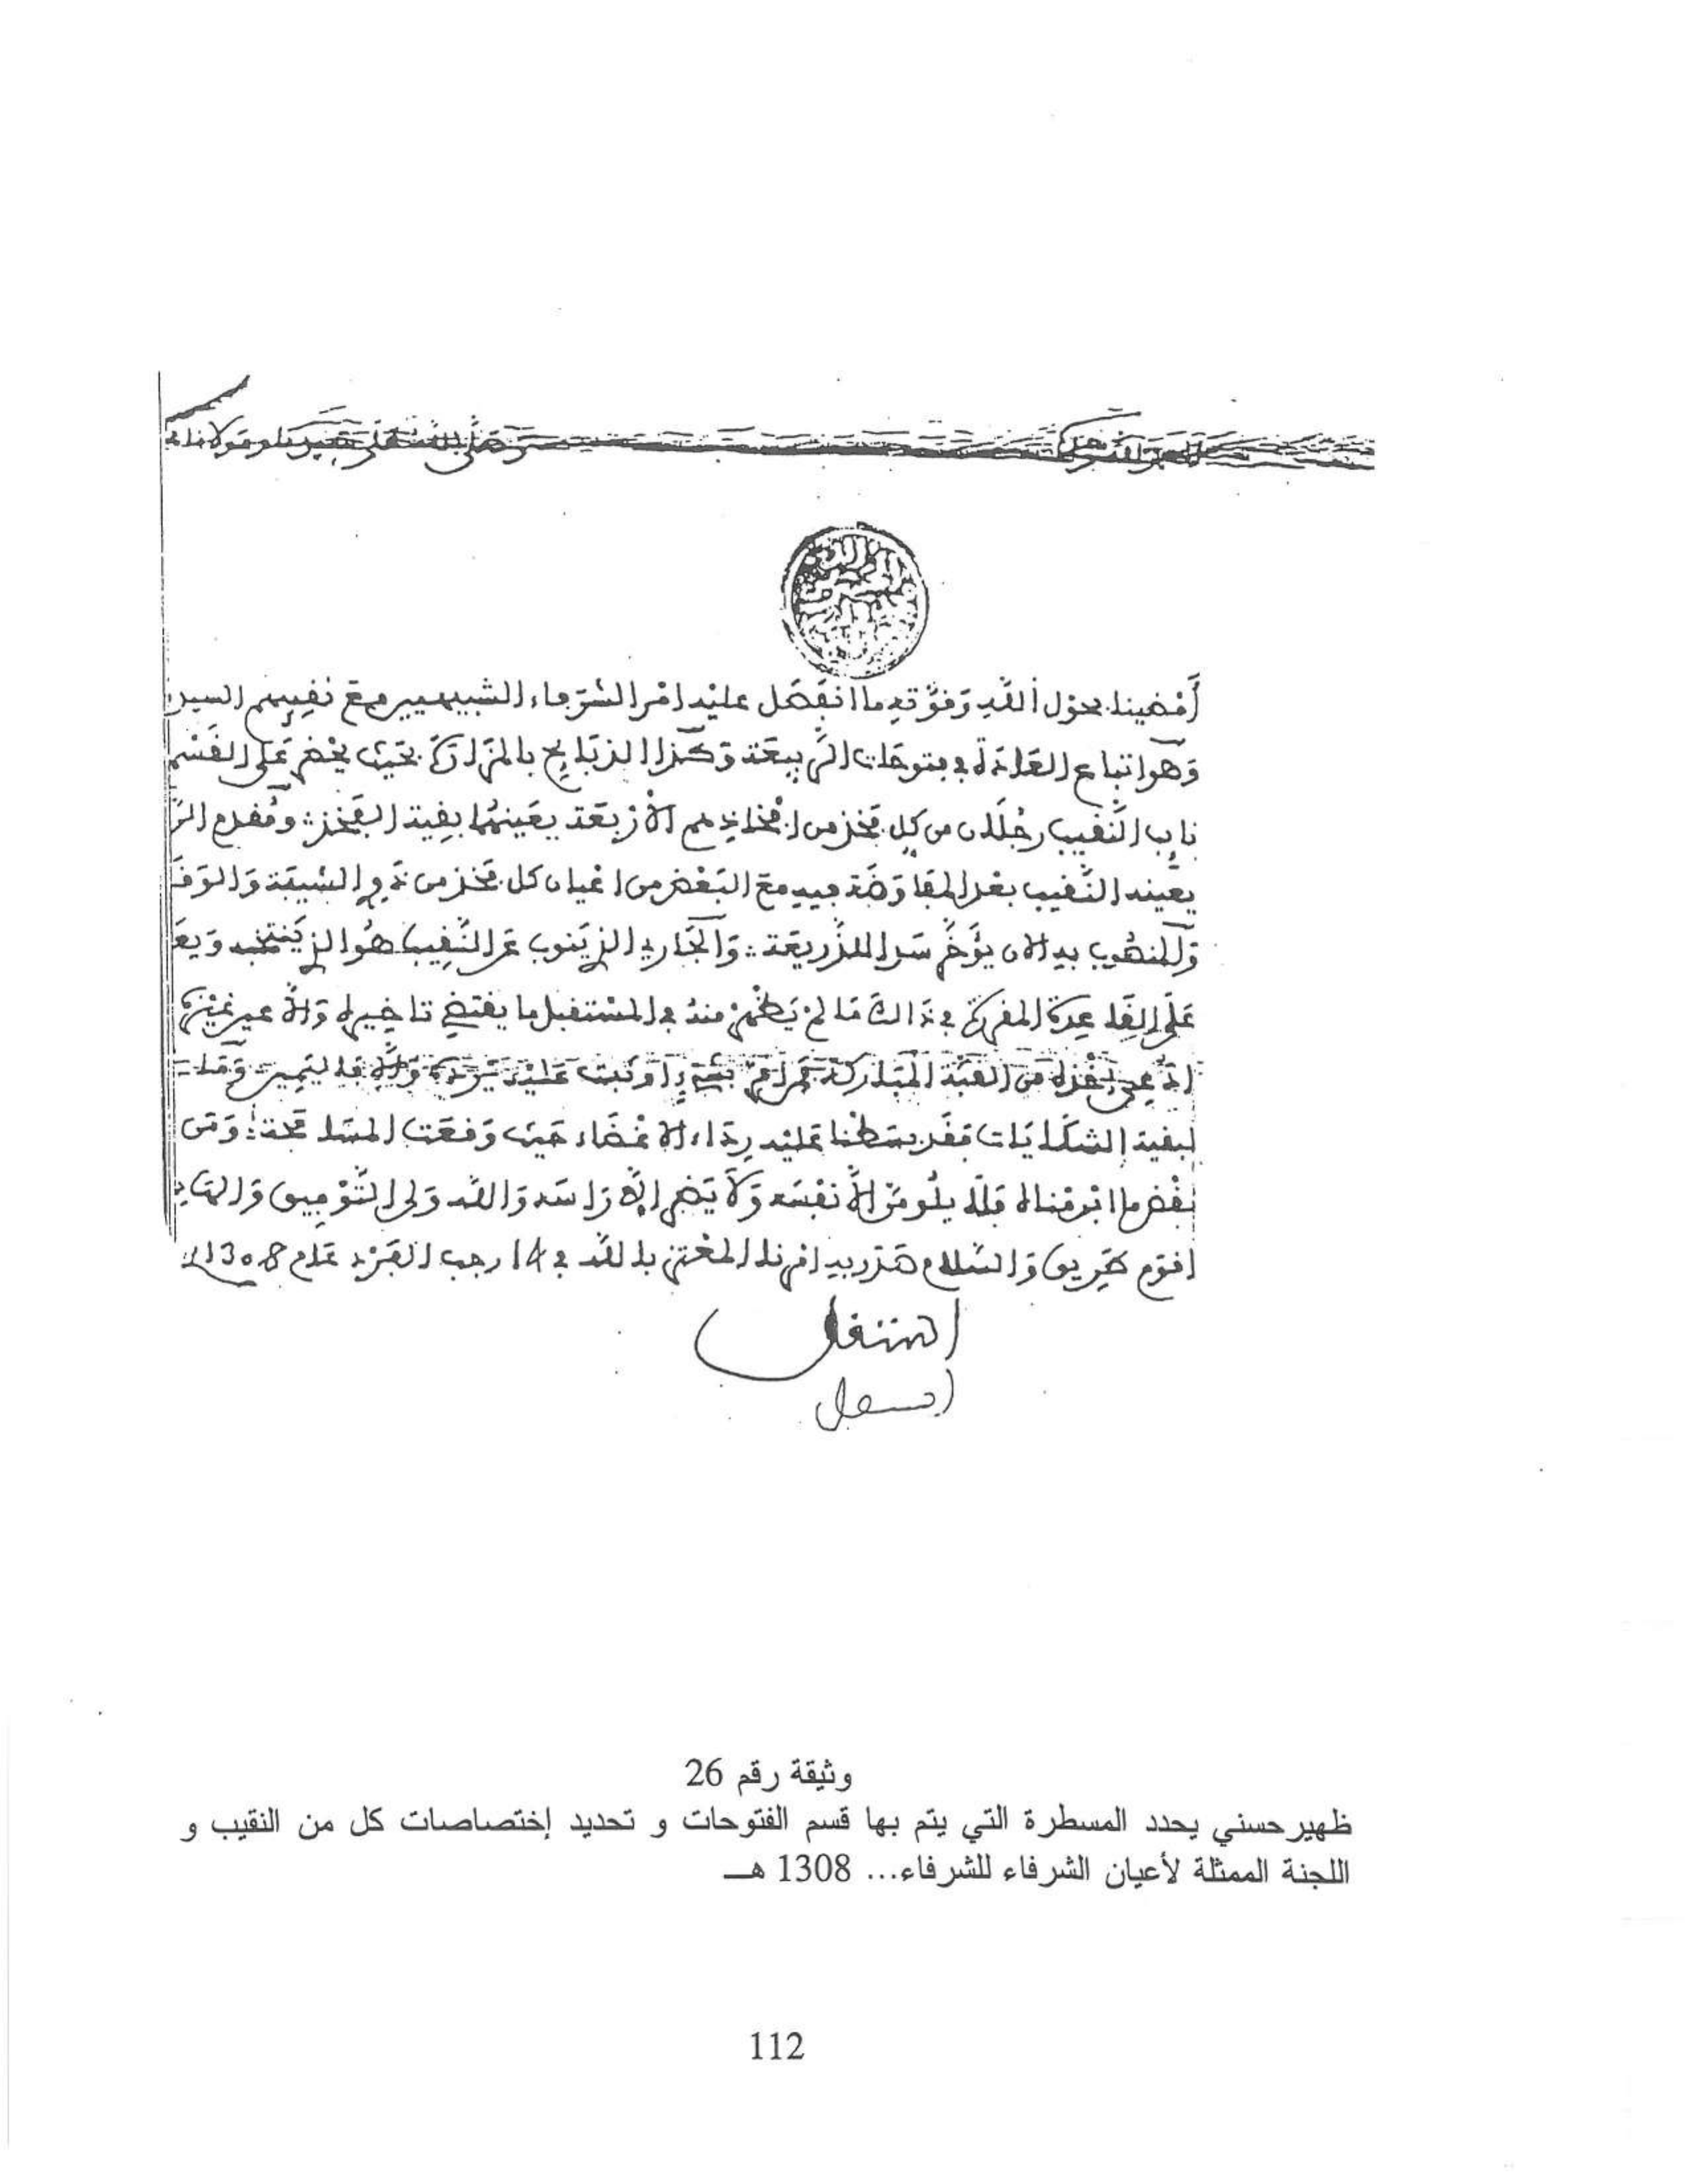 الحمد لله وحده وصلى الله على سيدنا ومولانا
أمضينا بحول الله وقوته ما انفصل عليه امر الشرفاء الشبيهيين مع نقيبهم السيد
وهو اتباع العادة في فتوحات الربيعة وكذا الذبايح بالمزارة بحيث يحضر على القسم
نايب النقيب رجلان من كل فخذ من افخاذهم الأربعة يعينهما بقية الفخذ ومقدم
يعينه النقيب بعد المفاوضة فيه مع البعض من اعيان كل فخذ من ذوي الشيبة والوقا
والمنصوب به الان يؤخر سدا للذريعة والجاري الذي ينوب عن النقيب هو الذي ينتخبه
على القاعدة المقررة في ذالك ما لم يظهر منه في المستقبل ما يقتضي تاخيره والا عين غيره
ادعي من القبة المباركة او ثبت عليه يرده والا فاليمين
لبقية الشكايات فقد بسطنا عليه رداء الاغضاء حيث وقعت المسامحة ومن
نقض ما ابرمناه فلا يلومن الا نفسه ولا يضر الا راسه والله ولي التوفيق
اقوم طريق والسلام صدر به امرنا المعتز بالله في 14 رجب الفرد عام 1308
استقل
وثيقة رقم 26
ظهير حسني يحدد المسطرة التي يتم بها قسم الفتوحات و تحديد إختصاصات كل من النقيب و
اللجنة الممثلة لأعيان الشرفاء للشرفاء... 1308 هـ
112